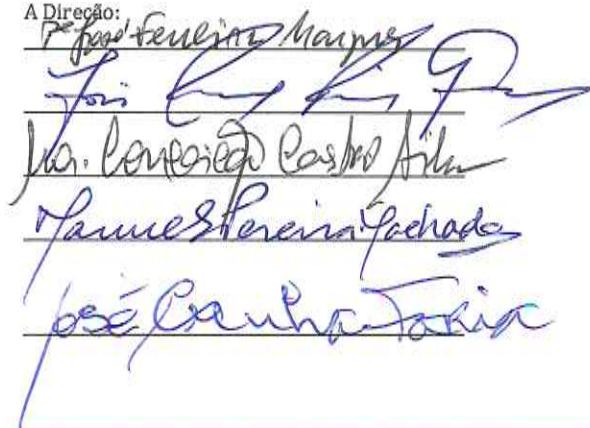 A Direção:
Pe José Ferreira Marques
José
Ma. Conceição Castro Silva
Manuel Pereira Machado
José Cunha Faria